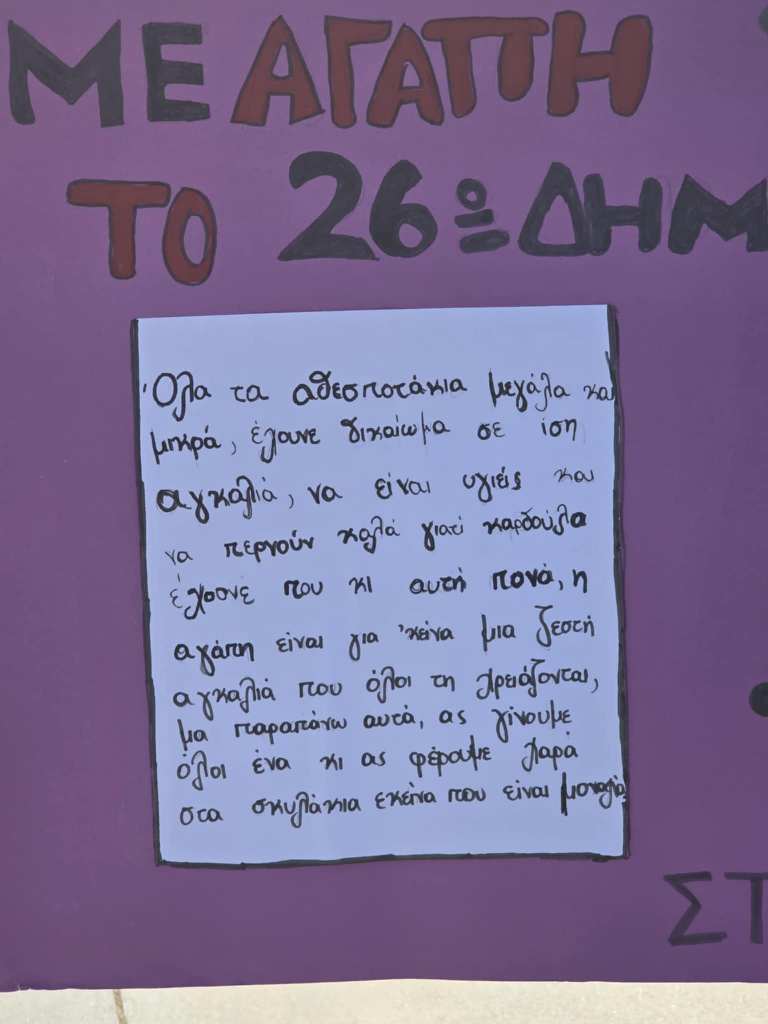 ΜΕ ΑΓΑΠΗ
ΤΟ 26ο ΔΗΜ
Όλα τα αδεσποτάκια μεγάλα και
μικρά, έχουνε δικαίωμα σε ίση
αγκαλιά, να είναι υγιές και
να περνούν καλά γιατί καρδούλα
έχουνε που κι αυτή πονά, η
αγάπη είναι για 'κείνα μια ζεστή
αγκαλιά που όλοι τη χρειάζονται,
μα παραπάνω αυτά, ας γίνουμε
όλοι ένα κι ας φέρουμε χαρά
στα σκυλάκια εκείνα που είναι μοναχά.
ΣΤ